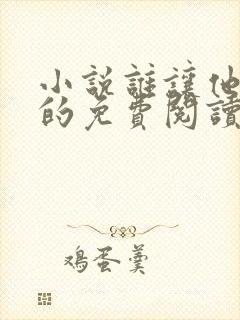 小说誰讓他
的免費閱讀
鸡蛋羹